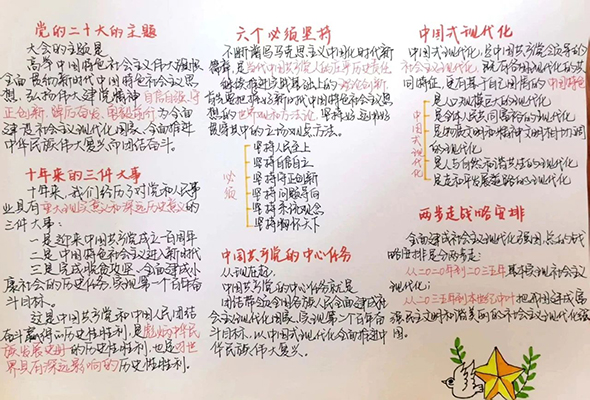 党的二十大的主题
大会的主题是
高举中国特色社会主义伟大旗帜
全面贯彻新时代中国特色社会主义思
想，弘扬伟大建党精神，自信自强、守
正创新，踔厉奋发、勇毅前行，为全面
建设社会主义现代化国家、全面推进
中华民族伟大复兴而团结奋斗。
十年来的三件大事
十年来，我们经历了对党和人民事
业具有重大现实意义和深远历史意义的
三件大事：
一是迎来中国共产党成立一百周年
二是中国特色社会主义进入新时代
三是完成脱贫攻坚、全面建成小
康社会的历史任务，实现第一个百年奋
斗目标。
这是中国共产党和中国人民团结
奋斗赢得的历史性胜利，是彪炳中华民
族发展史册的历史性胜利，也是对世
界具有深远影响的历史性胜利。
六个必须坚持
不断谱写马克思主义中国化时代新
篇章，是当代中国共产党人的庄严历史责任
继续推进实践基础上的理论创新，
首先要把握好新时代中国特色社会主义思
想的世界观和方法论，坚持好、运用好
贯穿其中的立场观点方法。
必须
坚持人民至上
坚持自信自立
坚持守正创新
坚持问题导向
坚持系统观念
坚持胸怀天下
中国共产党的中心任务
从现在起，
中国共产党的中心任务就是
团结带领全国各族人民全面建成社
会主义现代化强国、实现第二个百年奋
斗目标，以中国式现代化全面推进中
华民族伟大复兴。
中国式现代化
中国式现代化，是中国共产党领导的
社会主义现代化，既有各国现代化的共
同特征，更有基于自己国情的中国特色
中国式现代化
是人口规模巨大的现代化
是全体人民共同富裕的现代化
是物质文明和精神文明相协调
的现代化
是人与自然和谐共生的现代化
是走和平发展道路的现代化
两步走战略安排
全面建成社会主义现代化强国，总的战
略安排是分两步走：
从二〇二〇年到二〇三五年基本实现社会主义
现代化；
从二〇三五年到本世纪中叶把我国建成富
强民主文明和谐美丽的社会主义现代化强
国。